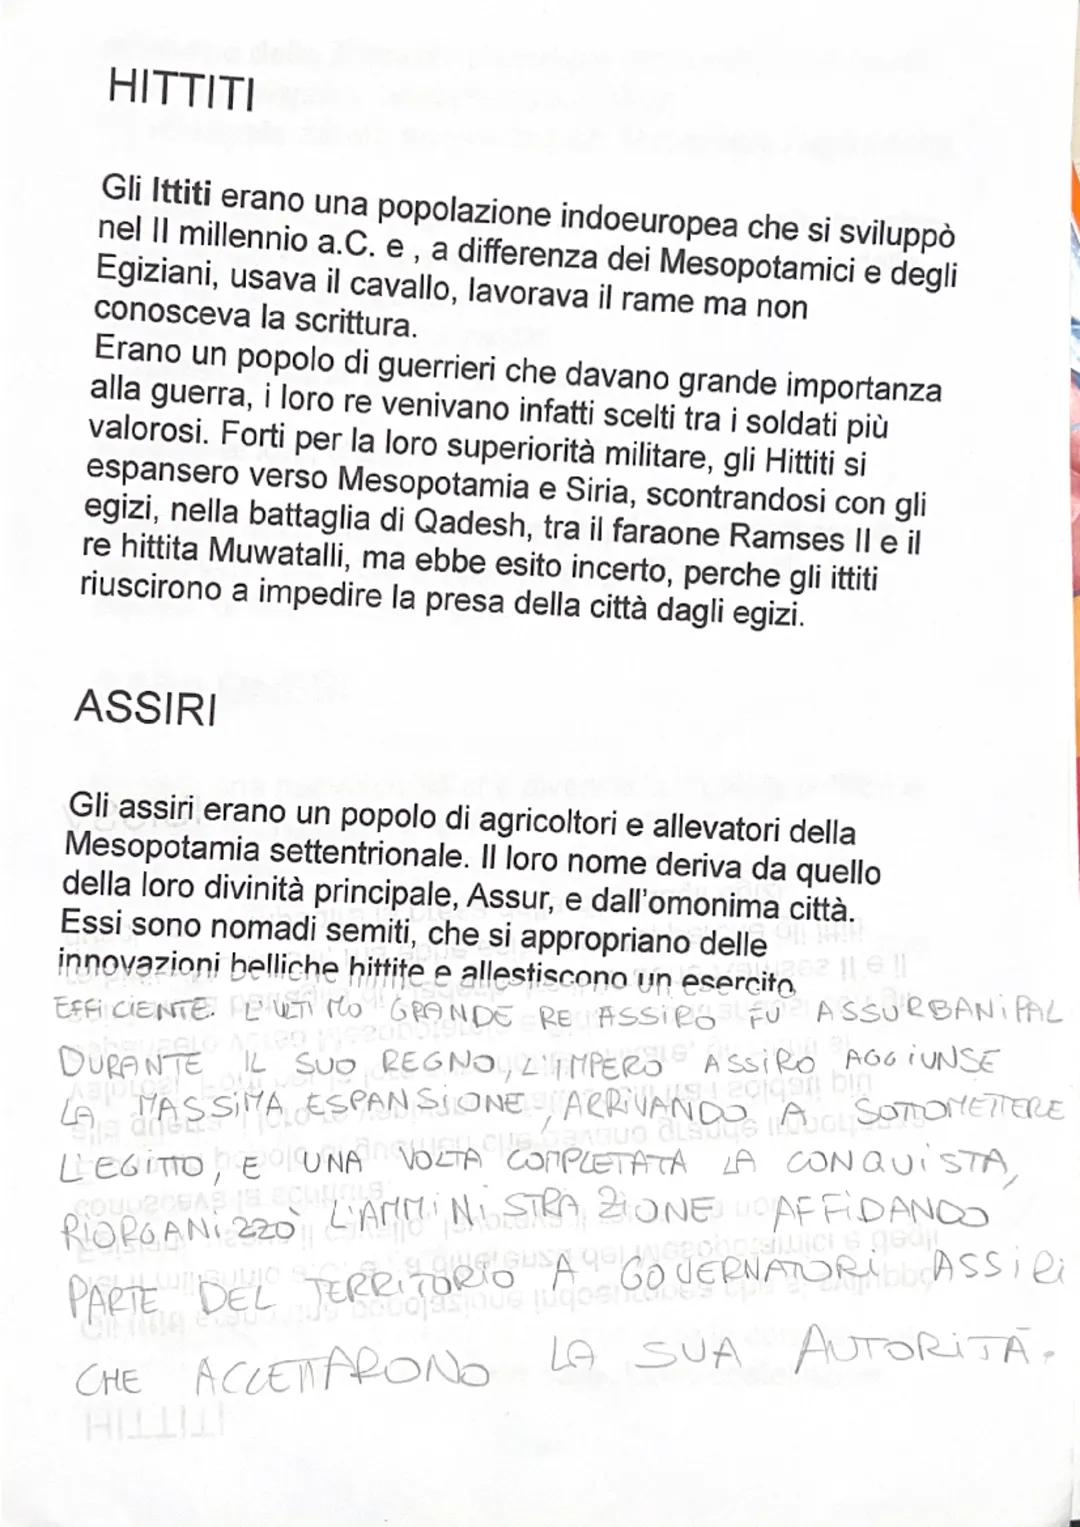 HITTITI
Gli Ittiti erano una popolazione indoeuropea che si sviluppò
nel II millennio a.C. e , a differenza dei Mesopotamici e degli
Egiziani, usava il cavallo, lavorava il rame ma non
conosceva la scrittura.
Erano un popolo di guerrieri che davano grande importanza
alla guerra, i loro re venivano infatti scelti tra i soldati più
valorosi. Forti per la loro superiorità militare, gli Hittiti si
espansero verso Mesopotamia e Siria, scontrandosi con gli
egizi, nella battaglia di Qadesh, tra il faraone Ramses II e il
re hittita Muwatalli, ma ebbe esito incerto, perche gli ittiti
riuscirono a impedire la presa della città dagli egizi.
ASSIRI
Gli assiri erano un popolo di agricoltori e allevatori della
Mesopotamia settentrionale. Il loro nome deriva da quello
della loro divinità principale, Assur, e dall'omonima città.
Essi sono nomadi semiti, che si appropriano delle
innovazioni belliche hittite e allestiscono un esercito
EFFICIENTE. L'ULTIMO GRANDE RE ASSIRO FÙ ASSURBANIPAL
DURANTE IL SUO REGNO, L'IMPERO ASSIRO AGGIUNSE
LA MASSIMA ESPANSIONE, ARRIVANDO A SOTTOMETTERE
L'EGITTO, E UNA VOLTA COMPLETATA LA CONQUISTA,
RIORGANIZZÒ L'AMMINISTRAZIONE AFFIDANDO
PARTE DEL TERRITORIO A GOVERNATORI ASSIRI
CHE ACCETTARONO LA SUA AUTORITÀ.